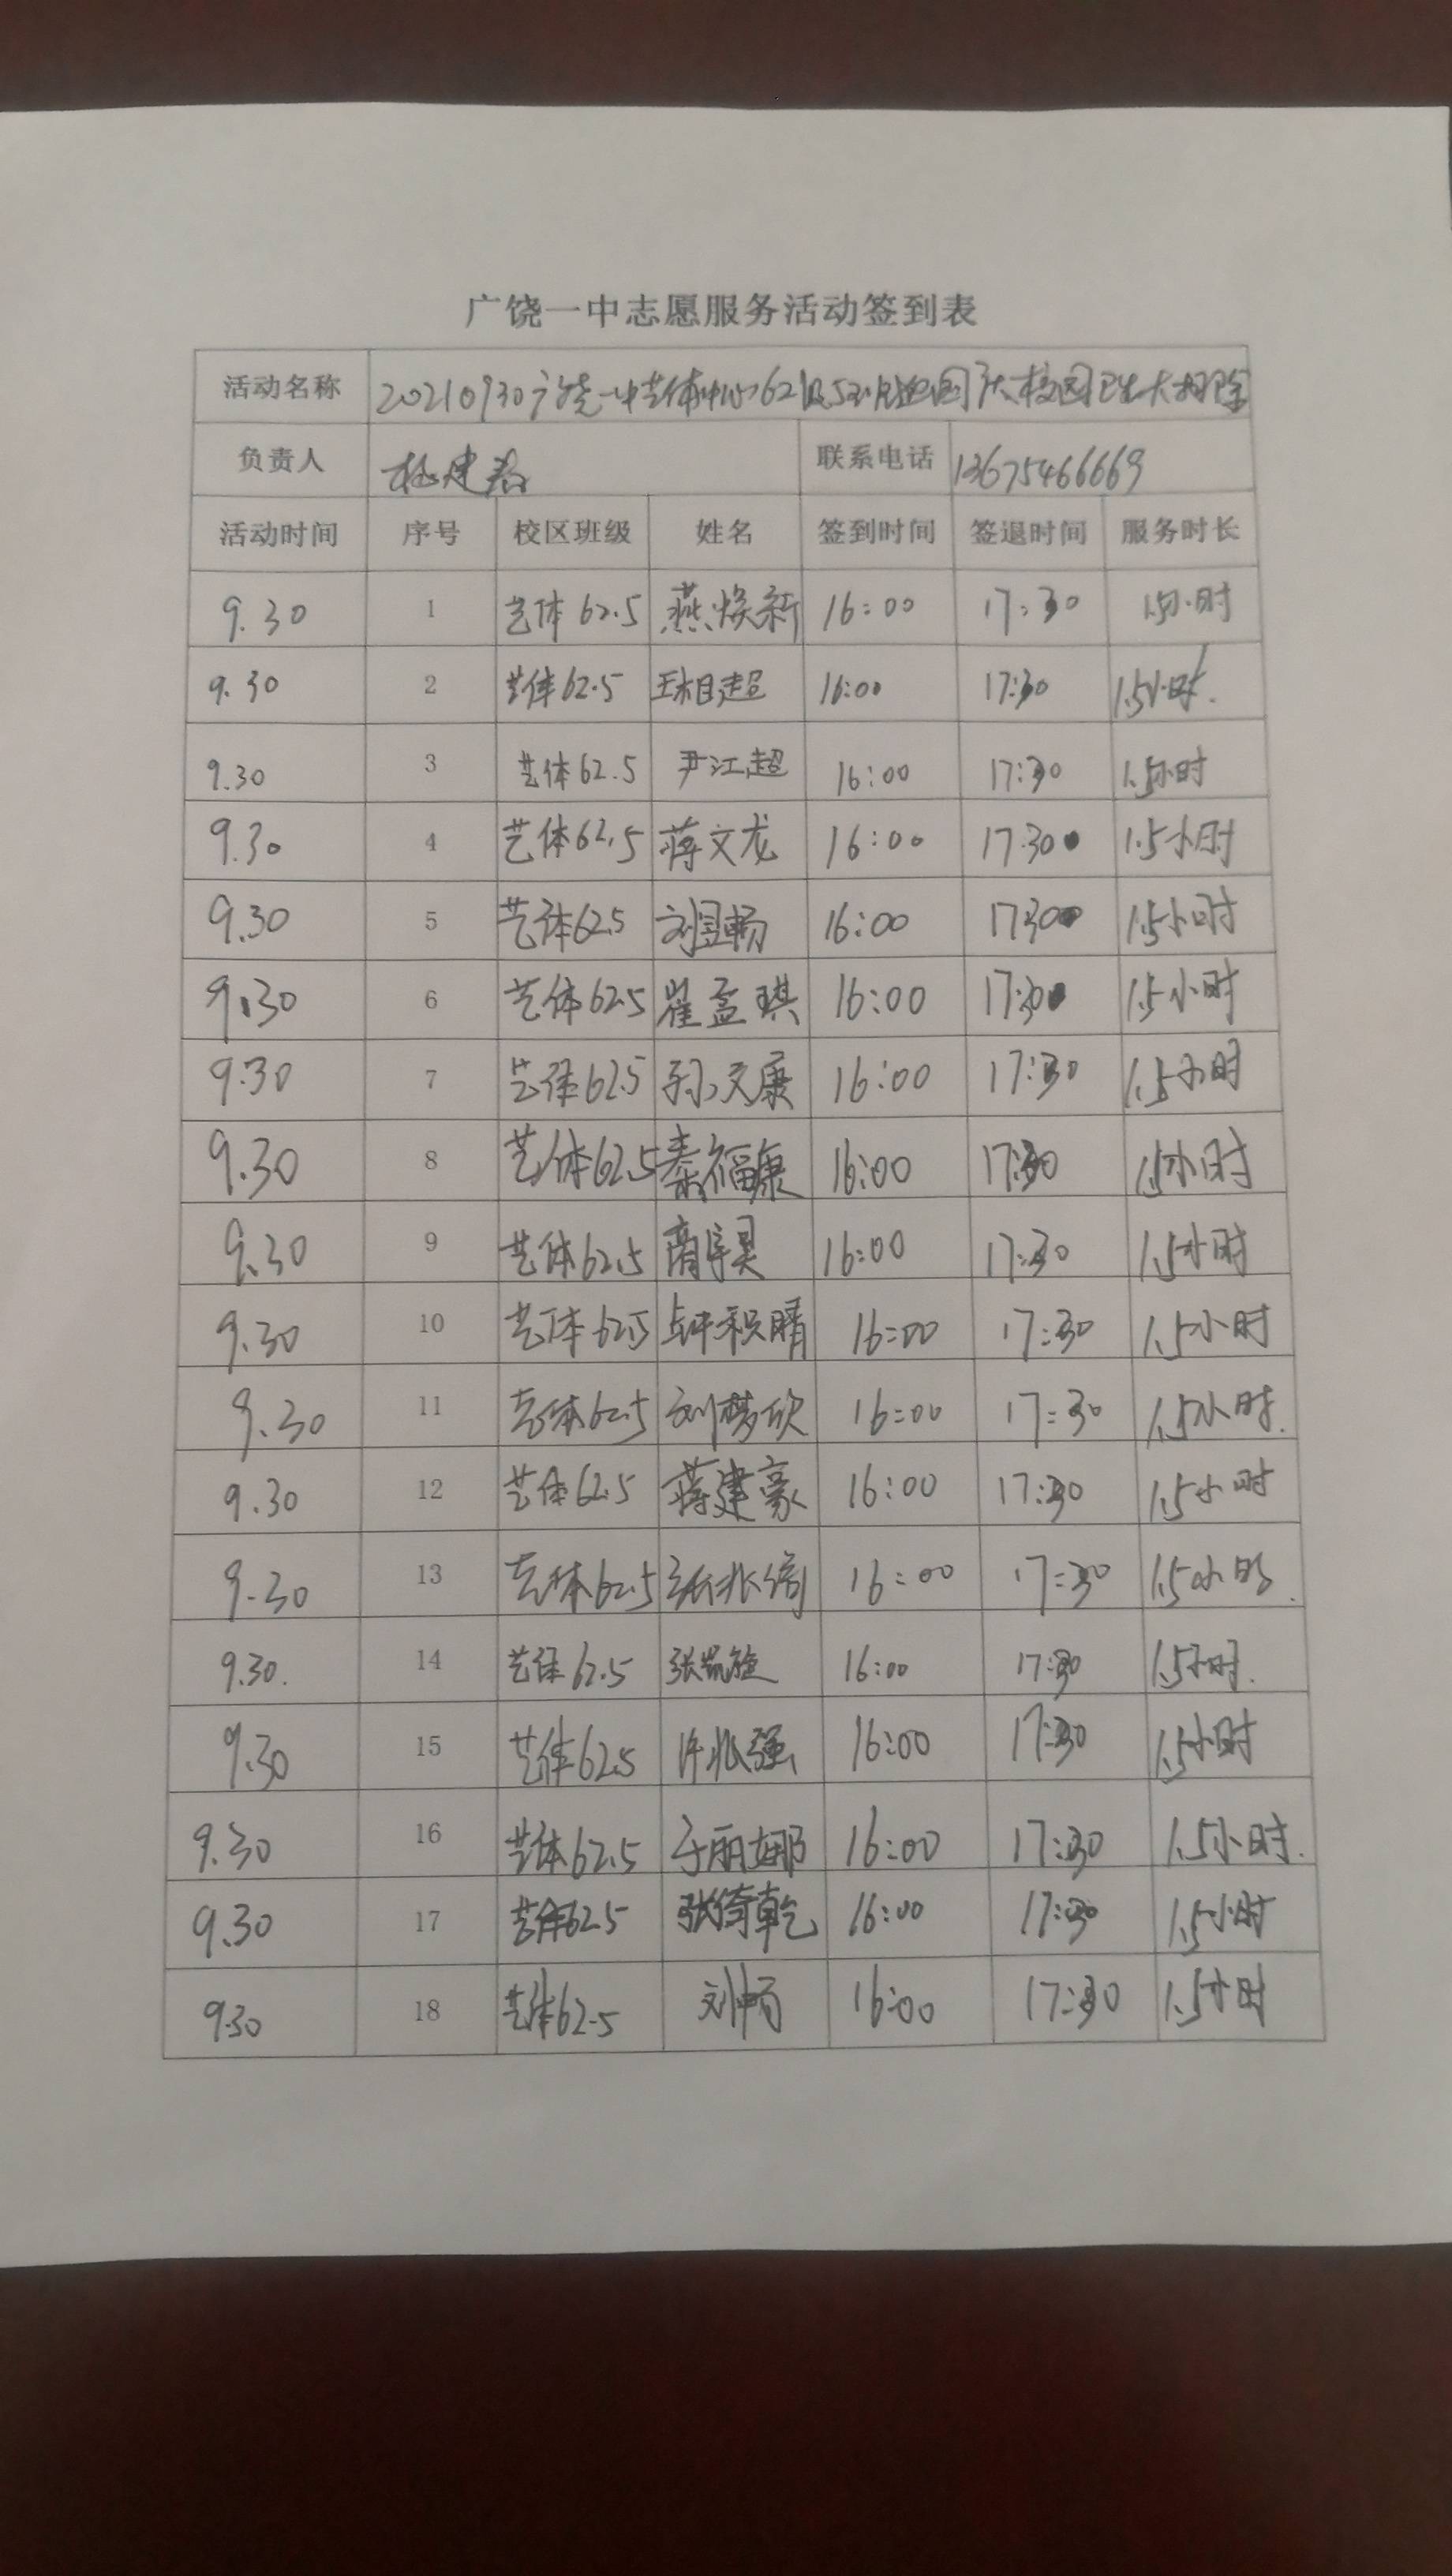 广饶一中志愿服务活动签到表
活动名称 20210930广饶一中艺体中心62级5班迎国庆校园卫生大扫除
负责人 联系电话 13675466669
活动时间 序号 校区班级 姓名 签到时间 签退时间 服务时长
9.30 1 艺体62.5 燕焕新 16:00 17:30 1.5小时
9.30 2 艺体62.5 王相超 16:00 17:30 1.5小时.
9.30 3 艺体62.5 尹江超 16:00 17:30 1.5小时
9.30 4 艺体62.5 蒋文龙 16:00 17:30 1.5小时
9.30 5 艺体62.5 刘昱畅 16:00 17:30 1.5小时
9.30 6 艺体62.5 崔孟琪 16:00 17:30 1.5小时
9.30 7 艺体62.5 孙文康 16:00 17:30 1.5小时
9.30 8 艺体62.5 秦福康 16:00 17:30 1.5小时
9.30 9 艺体62.5 16:00 17:30 1.5小时
9.30 10 艺体62.5 16:00 17:30 1.5小时
9.30 11 艺体62.5 刘梦欣 16:00 17:30 1.5小时.
9.30 12 艺体62.5 蒋建豪 16:00 17:30 1.5小时
9.30 13 艺体62.5 16:00 17:30 1.5小时.
9.30. 14 艺体62.5 16:00 17:30 1.5小时.
9.30 15 艺体62.5 许兆强 16:00 17:30 1.5小时
9.30 16 艺体62.5 于丽娜 16:00 17:30 1.5小时.
9.30 17 艺体62.5 张倚乾 16:00 17:30 1.5小时
9.30 18 艺体62.5 刘畅 16:00 17:30 1.5小时